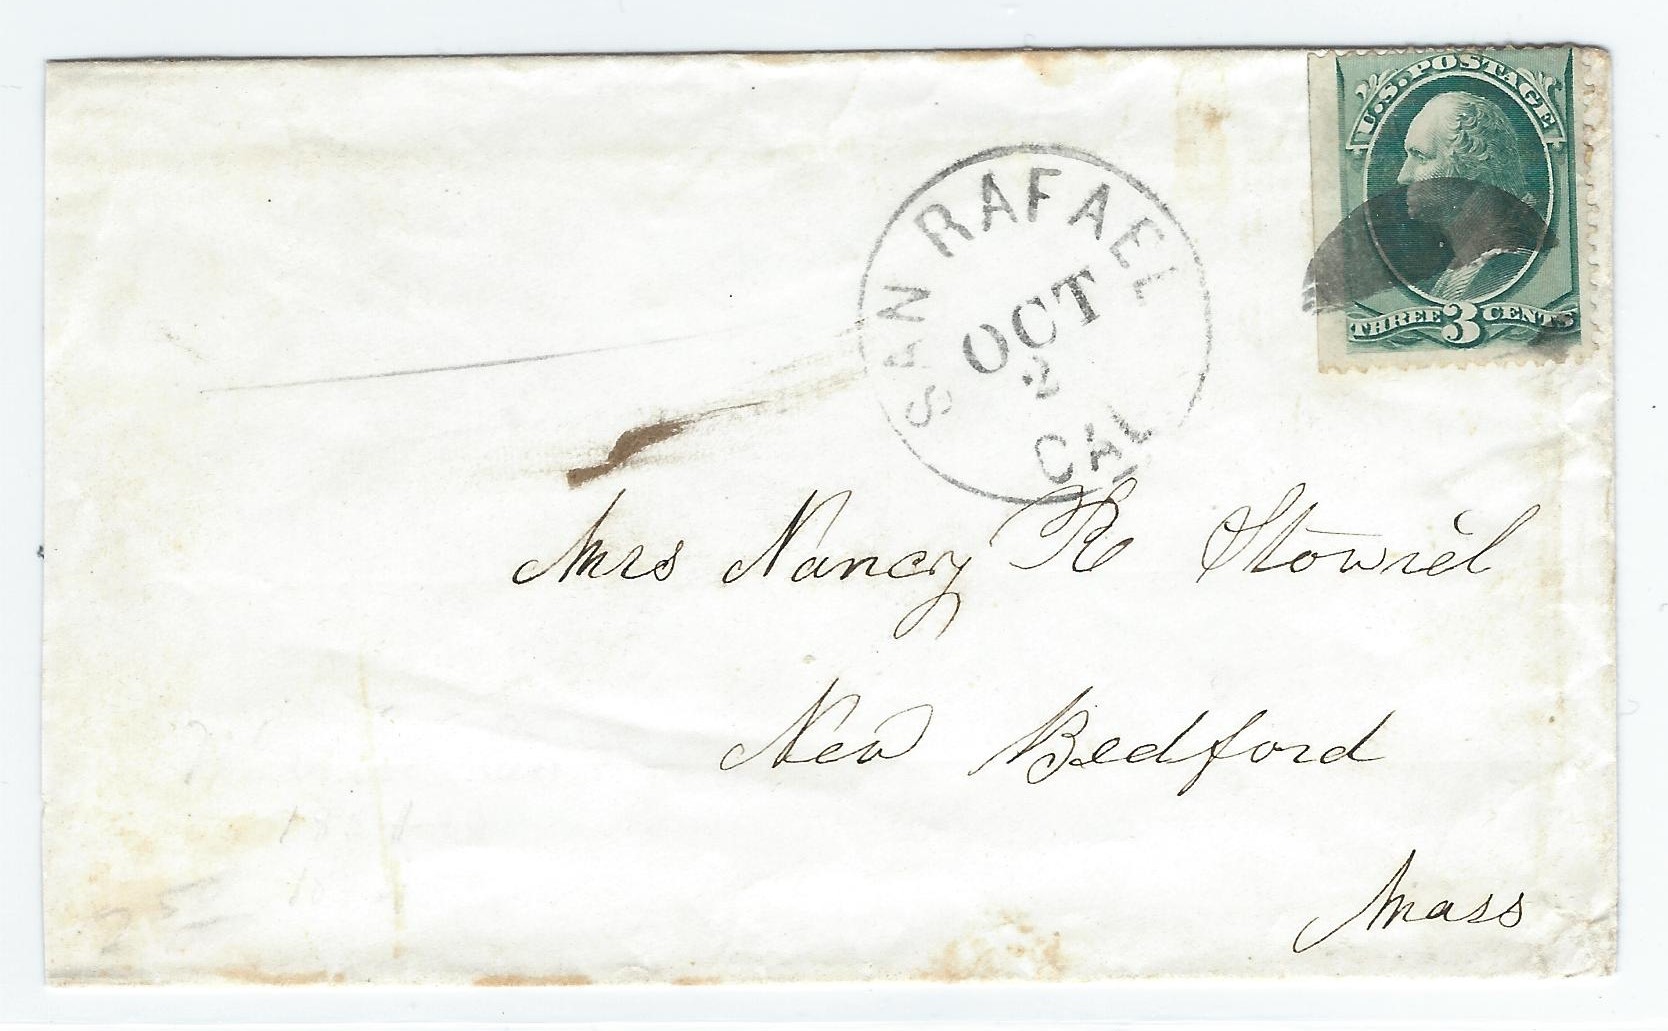 U.S. POSTAGE
THREE 3 CENTS
SAN RAFAEL
OCT
2
CAL
Mrs Nancy R Stowell
New Bedford
Mass